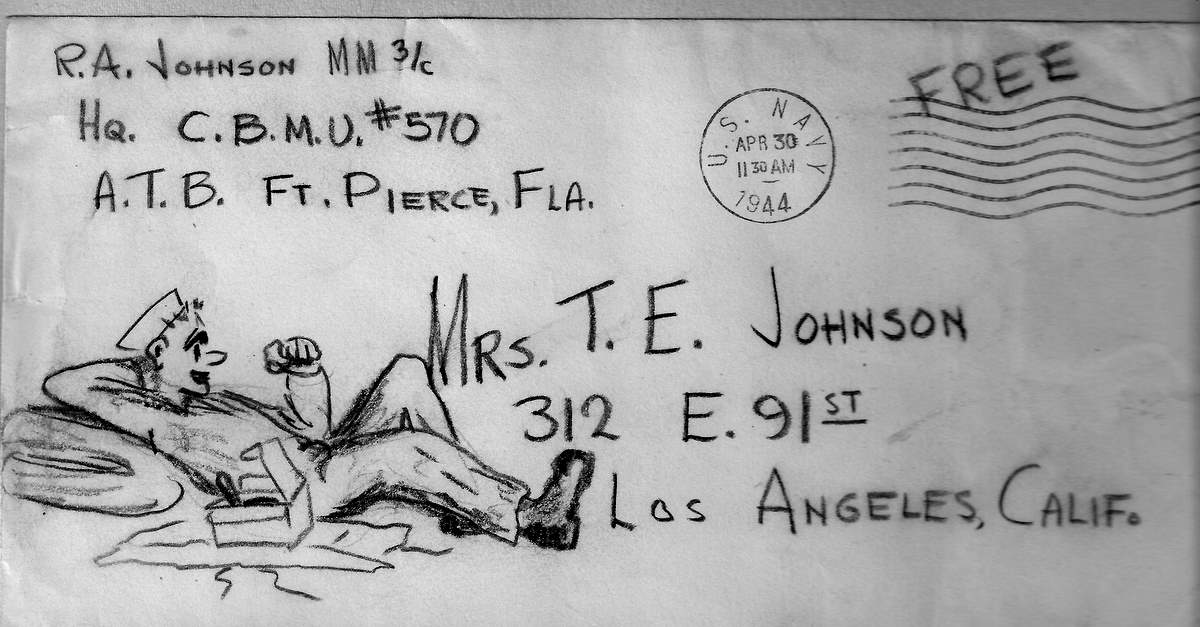 R.A. JOHNSON MM 3/c
HQ. C.B.M.U. #570
A.T.B. FT. PIERCE, FLA.
U.S. NAVY
APR 30
11 30 AM
1944
FREE
MRS. T. E. JOHNSON
312 E. 91ST
LOS ANGELES, CALIF.